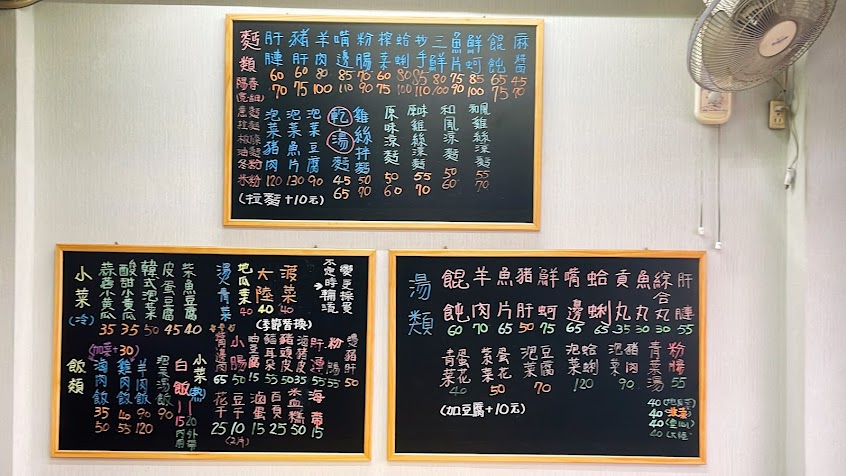 麵類
陽春
肝膁 60 70
豬肝 60 75
羊肉 80 100
嘴邊 85 110
粉腸 70 90
榨菜 60 75
蛤蜊 80 100
抄手 85 110
三鮮 80 100
魚片 75 90
鮮蚵 85 100
餛飩 65 75
麻醬 45 70
冬粉
米粉
泡菜豬肉 120
泡菜魚片 130
泡菜豆腐 90
乾湯麵 45 65
雞絲拌麵 50 70
原味涼麵 50 60
原味雞絲涼麵 55 70
和風涼麵 50 60
和風雞絲涼麵 55 70
(拉麵+10元)
小菜(冷)
蒜香小黃瓜 35
酸甜小黃瓜 35
韓式泡菜 50
皮蛋豆腐 45
柴魚豆腐 40
燙青菜
地瓜菜 40
大陸 40
菠菜 40
不定時輪流
變更採買
(季節替換)
小菜(熱)
嘴邊肉 65
小腸 50
油豆腐 15
豬耳朵 55
豬頭皮 50
滷豬皮 35
肝膁 55
粉腸 55
燙豬肝 50
花干 25
豆干 10
(2片)
滷蛋 15
百頁 25
米血糕 50
海帶 15
飯類
(加菜+30)
滷肉飯 35 50
雞肉飯 40 55
羊肉飯 90 120
泡菜湯飯 90
白飯
15內用
20外帶
湯類
餛飩 60
羊肉 70
魚片 65
豬肝 50
鮮蚵 75
嘴邊 65
蛤蜊 65
貢丸 35
魚丸 30
綜合丸 30
肝膁 55
青菜蛋花 40
紫菜蛋花 50
泡菜豆腐 70
泡菜蛤蜊 120
泡菜豬肉 90
青菜湯
粉腸 55
40
40(菠菜)
40
40(大陸)
(加豆腐+10元)